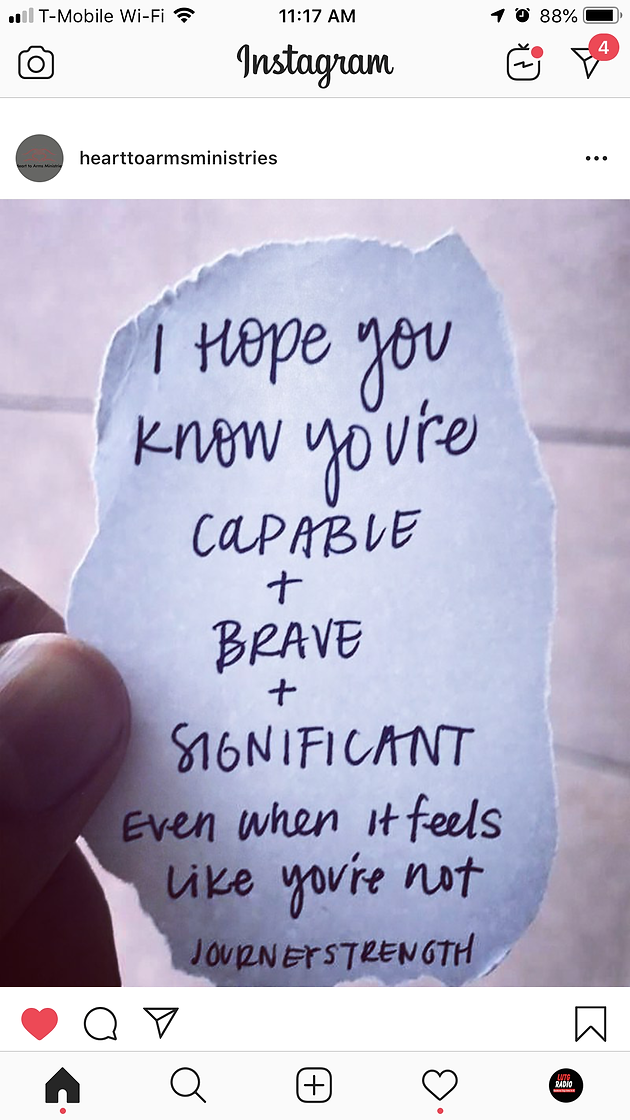 T-Mobile Wi-Fi 11:17 AM 88%
Instagram
4
hearttoarmsministries
I Hope you
know you're
CAPABLE
+
BRAVE
+
SIGNIFICANT
Even when it feels
like you're not
JOURNEYSTRENGTH
RADIO